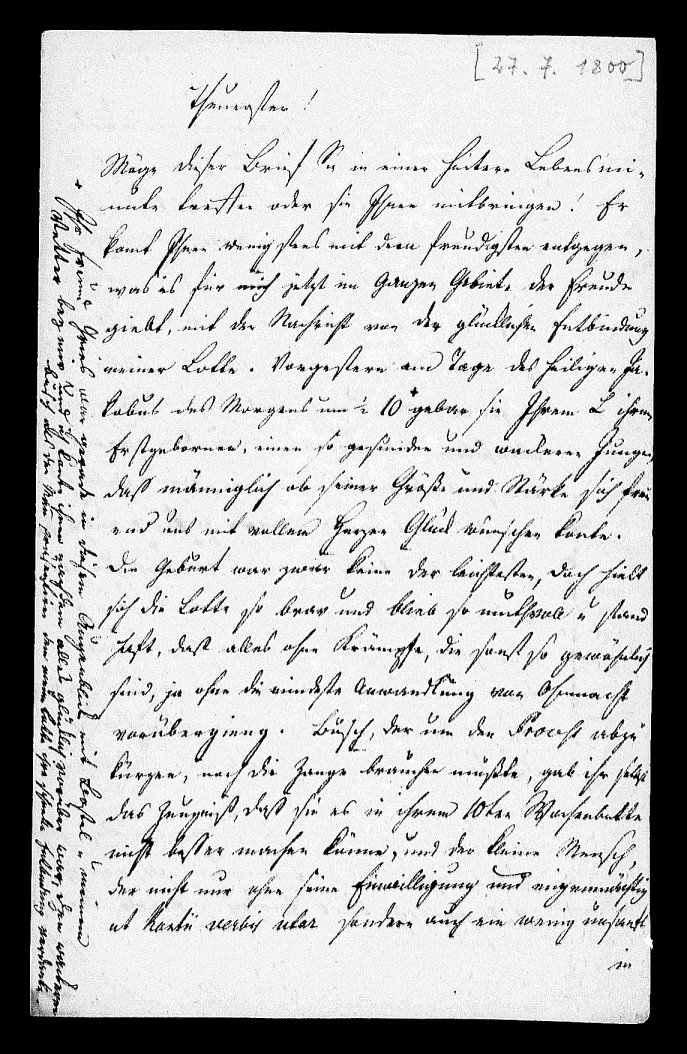 [27. 7. 1800]
Theuerster!
Möge dieser Brief Sie in einer heitern Lebensmi-
nute treffen oder sie Ihnen mitbringen! Er
komt Ihnen wenigstens mit dem freudigsten entgegen,
was es für mich jetzt im Ganzen Gebiete der Freude
giebt, mit der Nachricht von der glücklichen Entbindung
meiner Lotte. Vorgestern am Tage des heiligen Ja-
kobus des Morgens um ½ 10 + gebar sie Ihrem L ihren
Erstgebornen, einen so gesunden und wackeren Jungen,
daß männiglich ob seiner Größe und Stärke sich freu
und uns mit vollem Herzen Glück wünschen konte.
Die Geburt war zwar keine der leichtesten, doch hielt
sich die Lotte so brav und blieb so muthvoll u stand
haft, daß alles ohne Krämpfe, die sonst so gewöhnlich
sind, ja ohne die mindeste Anwandlung von Ohnmacht
vorübergieng. Busch, der um den Proceß abzu
kürzen, noch die Zange brauchen mußte, gab ihr selbst
das Zeugniß, daß sie es in ihrem 10ten Wochenbette
nicht besser machen könne, und der kleine Mensch,
der nicht nur ohne seine Einwilligung und eigenmächtig
ut Kantii verbis utar sondern auch ein wenig unsanft
in
+ Ihr Freund Gries war gerade in diesem Augenblick mit u meinem
Vetter bey mir und ich konte ihnen nachdem alles glücklich vorüber war, den wackern
Busch als den Mann praesentiren dem meine Lotte ihre schnelle Entbindung verdankt.